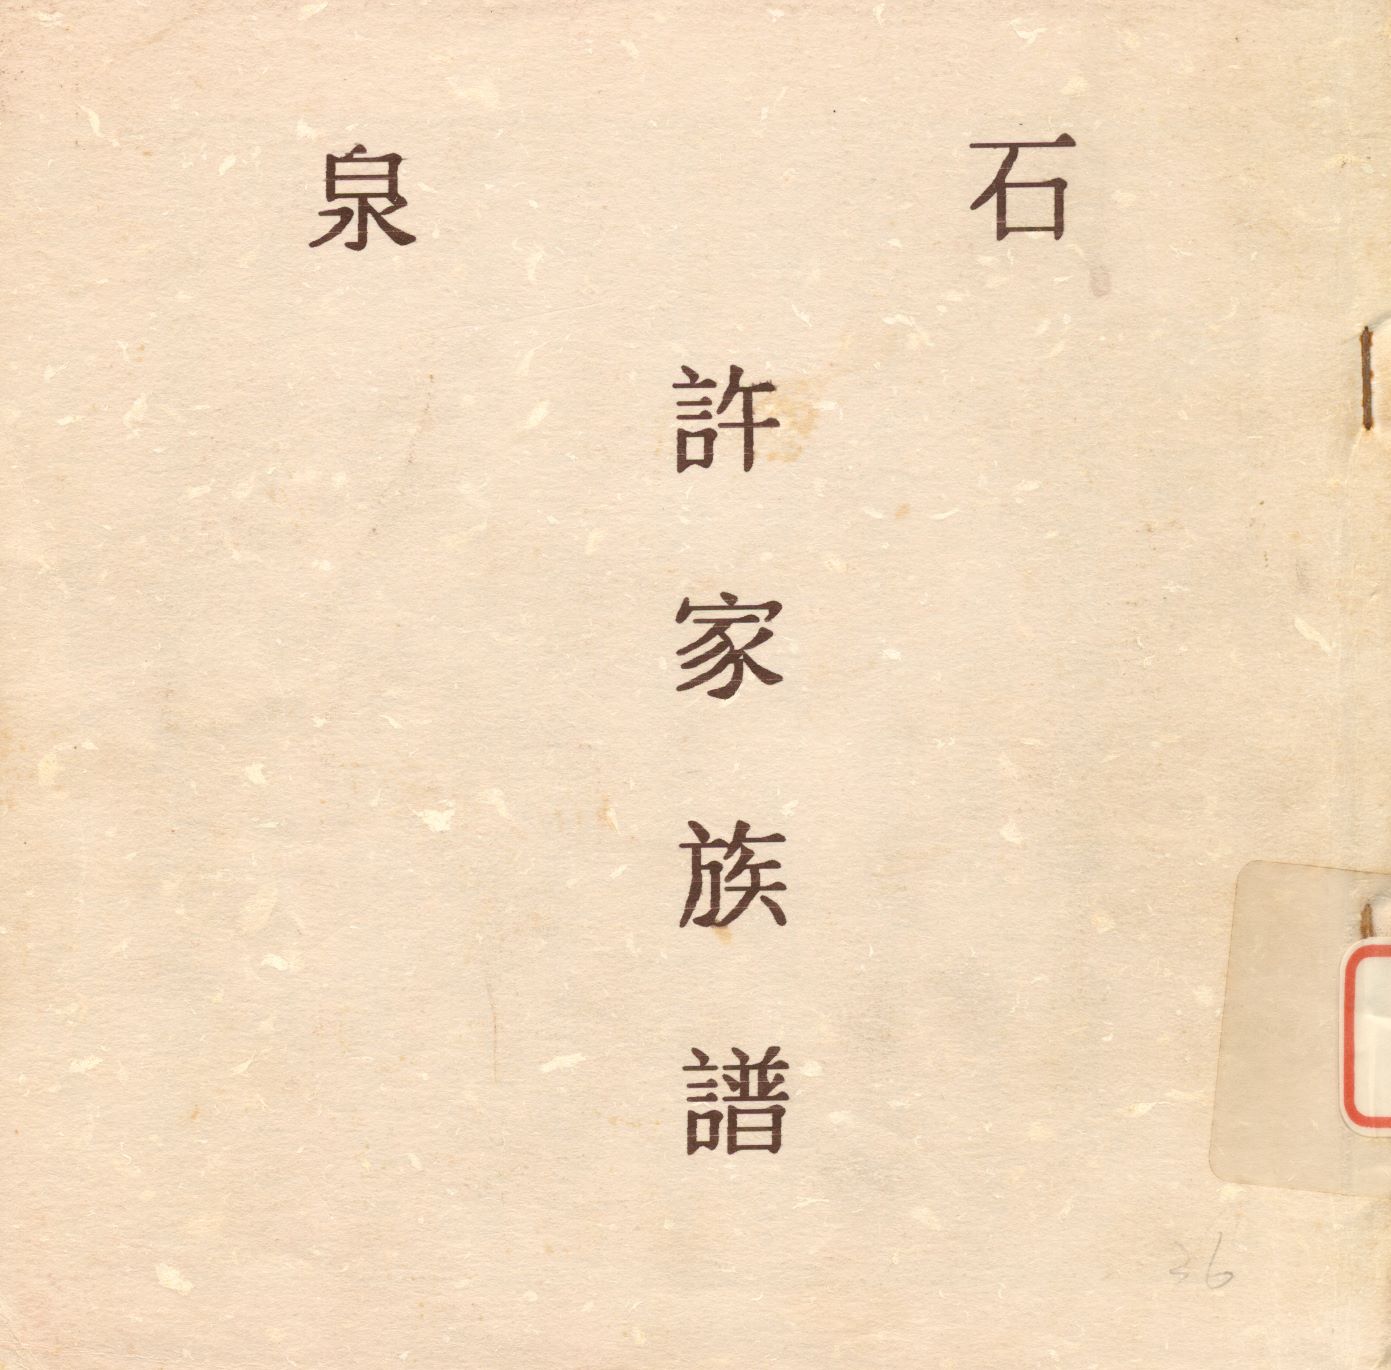 石泉
許家族譜
36